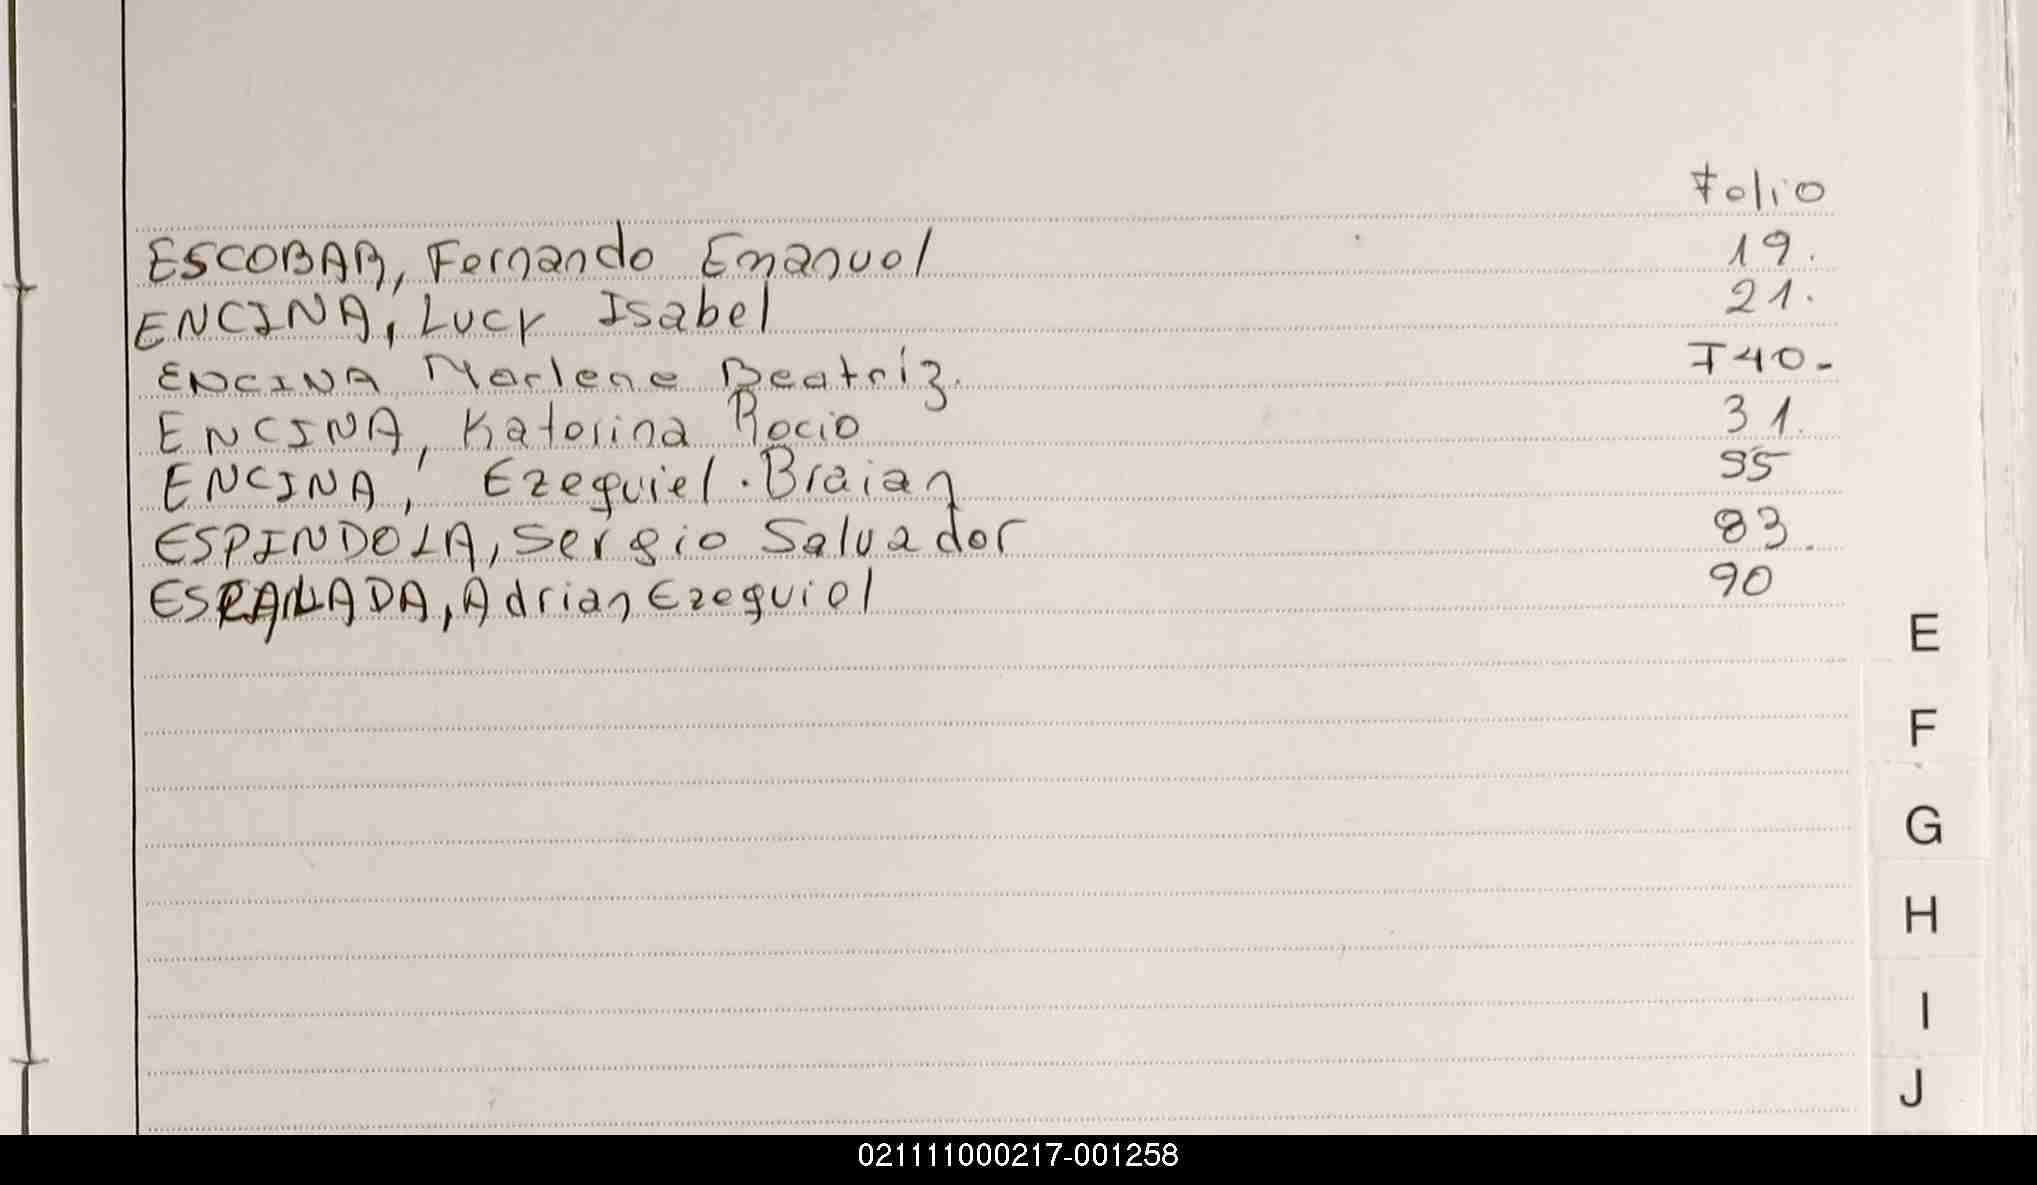 Folio
ESCOBAR, Fernando Emanuel 19.
ENCINA, Lucy Isabel 21.
ENCINA Marlene Beatriz. I40.-
ENCINA, Katerina Rocio 31.
ENCINA, Ezequiel Braian 55
ESPINDOLA, Sergio Salvador 83.
Adrian Ezequiel 90
E
F
G
H
I
J
021111000217-001258